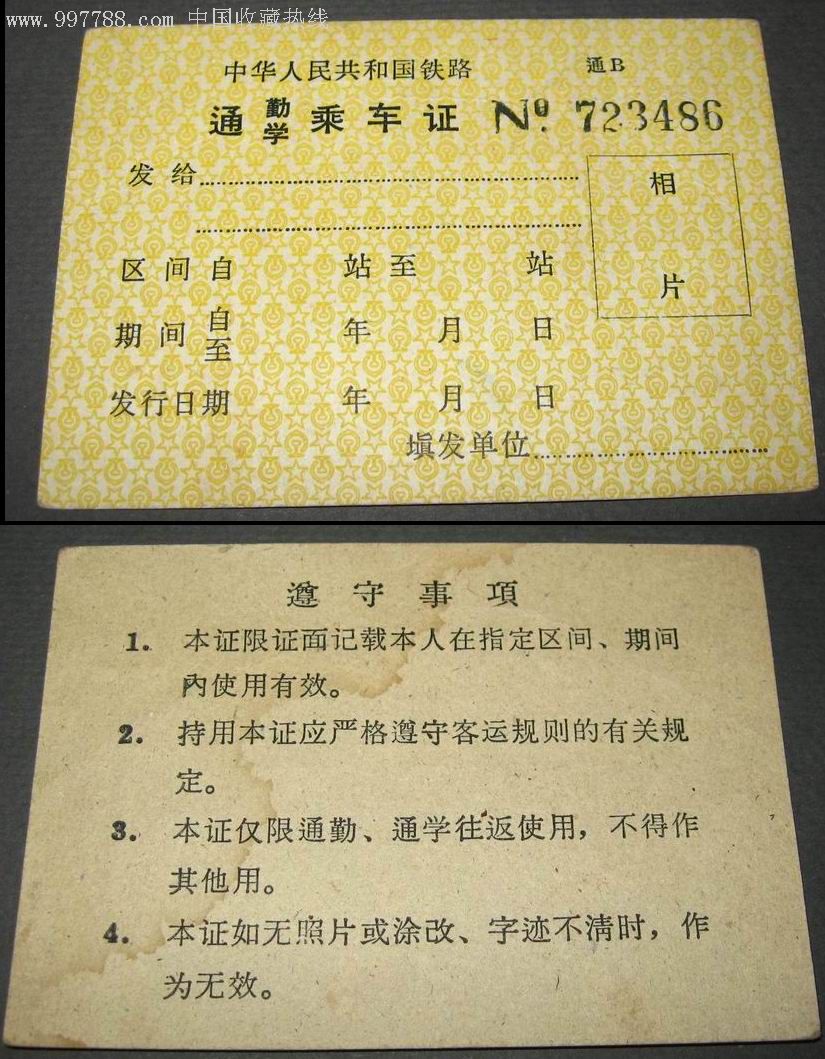 www.997788.com 中国收藏热线
中华人民共和国铁路 通B
通勤学乘车证 Nº 723486
发给
相
片
区间自 站至 站
期间自至 年 月 日
发行日期 年 月 日
填发单位
遵守事項
1. 本证限证面记载本人在指定区间、期间
內使用有效。
2. 持用本证应严格遵守客运规则的有关规
定。
3. 本证仅限通勤、通学往返使用，不得作
其他用。
4. 本证如无照片或涂改、字迹不清时，作
为无效。